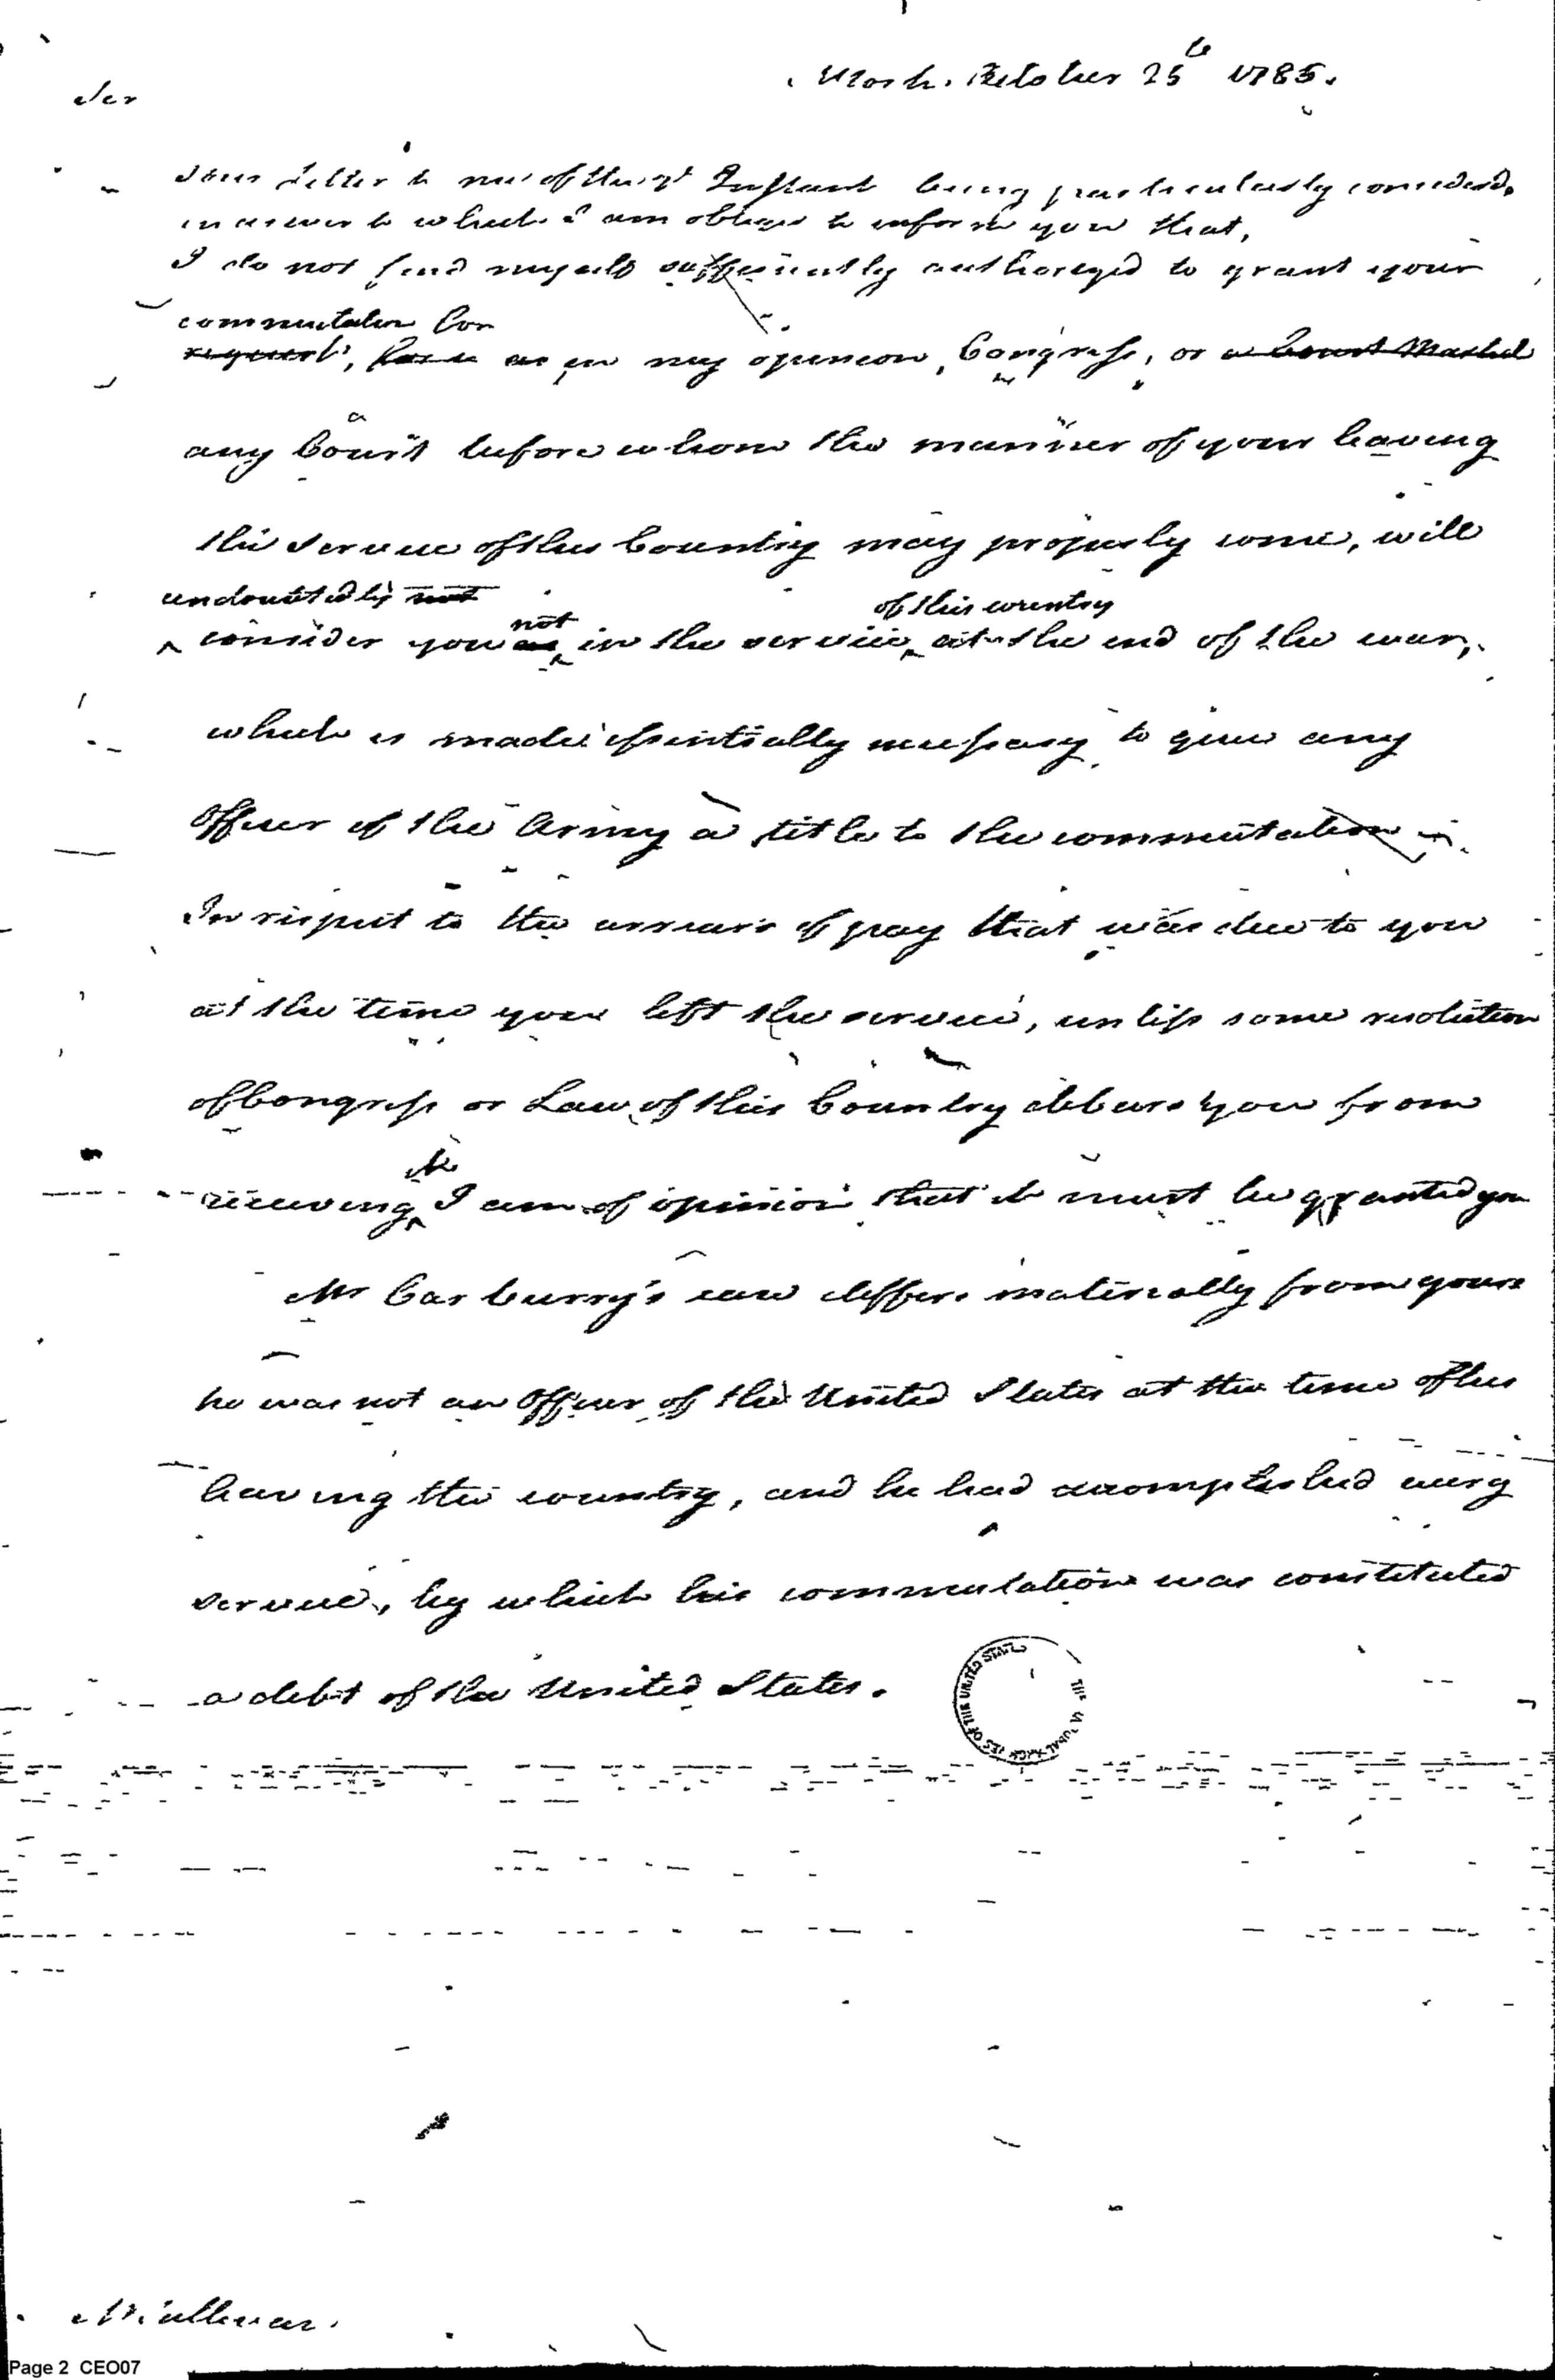 N York. October 25th 1785.
Sir
Your Letter to me of the Instant being particularly considered.
in answer to which I am obliged to inform you that,
I do not find myself sufficiently authorized to grant your
commutation for
request, as in my opinion, Congress, or a Court Martial
any Court before whom the manner of your leaving
the service of this Country may properly come, will
undoubtedly not
not of this country
consider you as in the service at the end of the war,
which is made essentially necessary to give any
Officer of the Army a title to the commutation.
In respect to the arrears of pay that was due to you
at the time you left the service, unless some resolution
of Congress or Law of this Country debars you from
it
receiving I am of opinion that it must be granted you
Mr Carburry's case differs materially from yours
he was not an Officer of the United States at the time of his
leaving the country, and he had accomplished every
service, by which his commutation was constituted
a debt of the United States.
THE NATIONAL ARCHIVES OF THE UNITED STATES
Page 2 CEO07